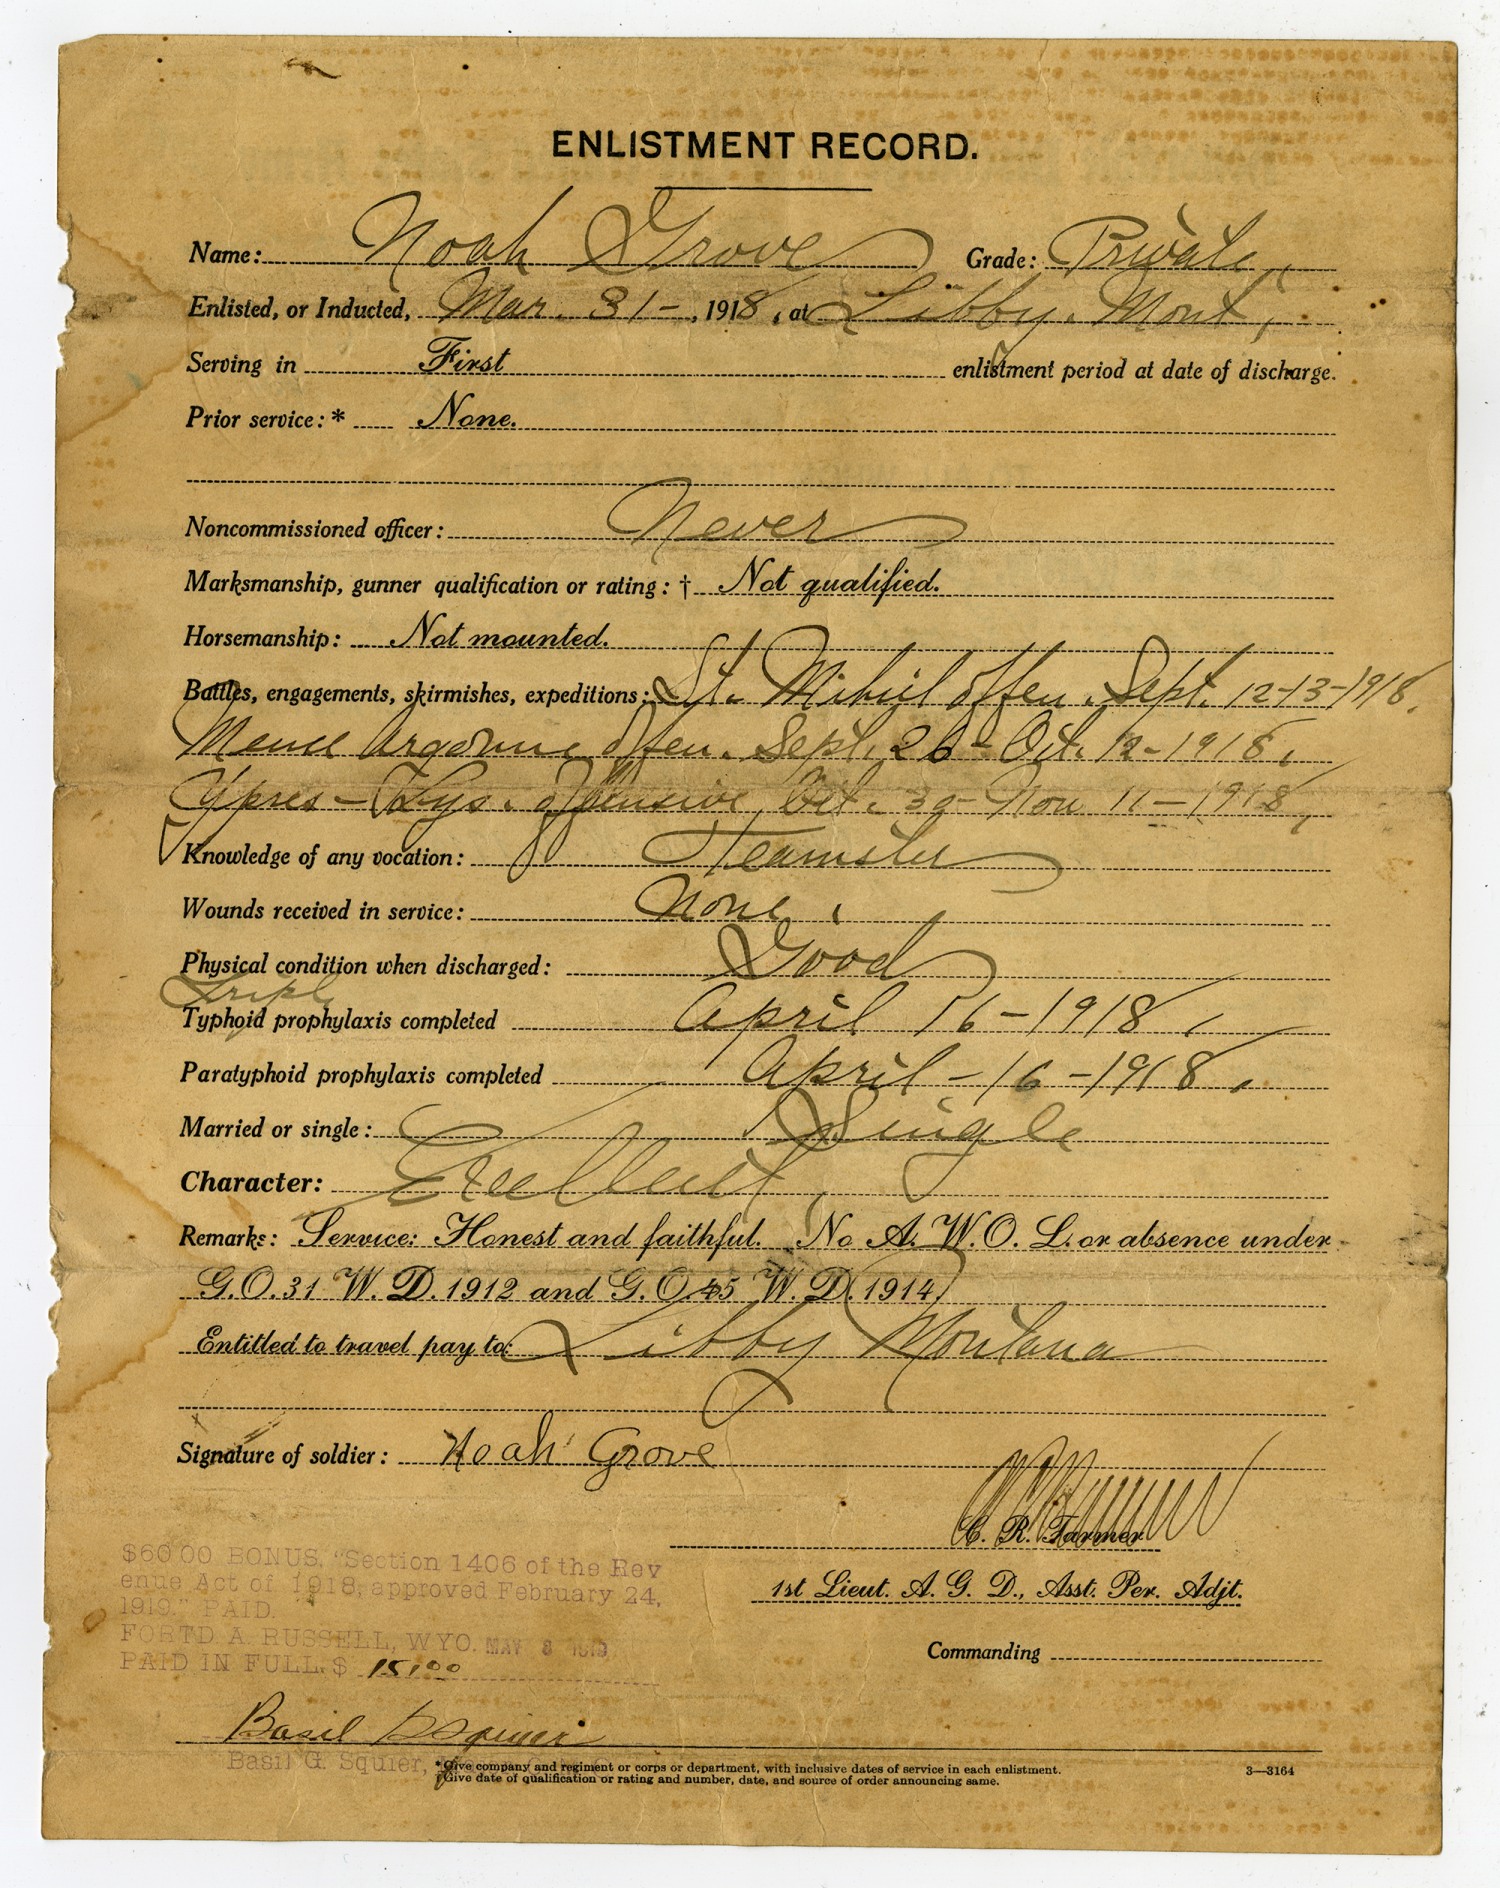 ENLISTMENT RECORD.
Name: Noah Grove Grade: Private,
Enlisted, or Inducted, Mar. 31-, 1918, at Libby. Mont,
Serving in First enlistment period at date of discharge.
Prior service: * None.
Noncommissioned officer: Never
Marksmanship, gunner qualification or rating: † Not qualified.
Horsemanship: Not mounted.
Battles, engagements, skirmishes, expeditions: St. Mihiel offen. Sept. 12-13-1918.
Meuse Argonne offen. Sept. 26- Oct. 12-1918,
Ypres-Lys. offensive, Oct. 30- Nov 11-1918,
Knowledge of any vocation: Teamster
Wounds received in service: None,
Physical condition when discharged: Good
Tripl
Typhoid prophylaxis completed April 16-1918,
Paratyphoid prophylaxis completed April-16-1918.
Married or single: Single
Character: Excellent,
Remarks: Service: Honest and faithful. No A. W. O. L. or absence under
G. O. 31 W. D. 1912 and G. O. 45 W. D. 1914
Entitled to travel pay to: Libby Montana
Signature of soldier: Noah Grove
C. R. Farmer
1st Lieut. A. G. D., Asst. Per. Adjt.
Commanding
$60 00 BONUS, "Section 1406 of the Rev
enue Act of 1918, approved February 24,
1919." PAID.
FORT D. A. RUSSELL, WYO. MAY 8 1919
PAID IN FULL $ 15,00
Basil G Squier
Basil G. Squier,
* Give company and regiment or corps or department, with inclusive dates of service in each enlistment.
† Give date of qualification or rating and number, date, and source of order announcing same.
3—3164